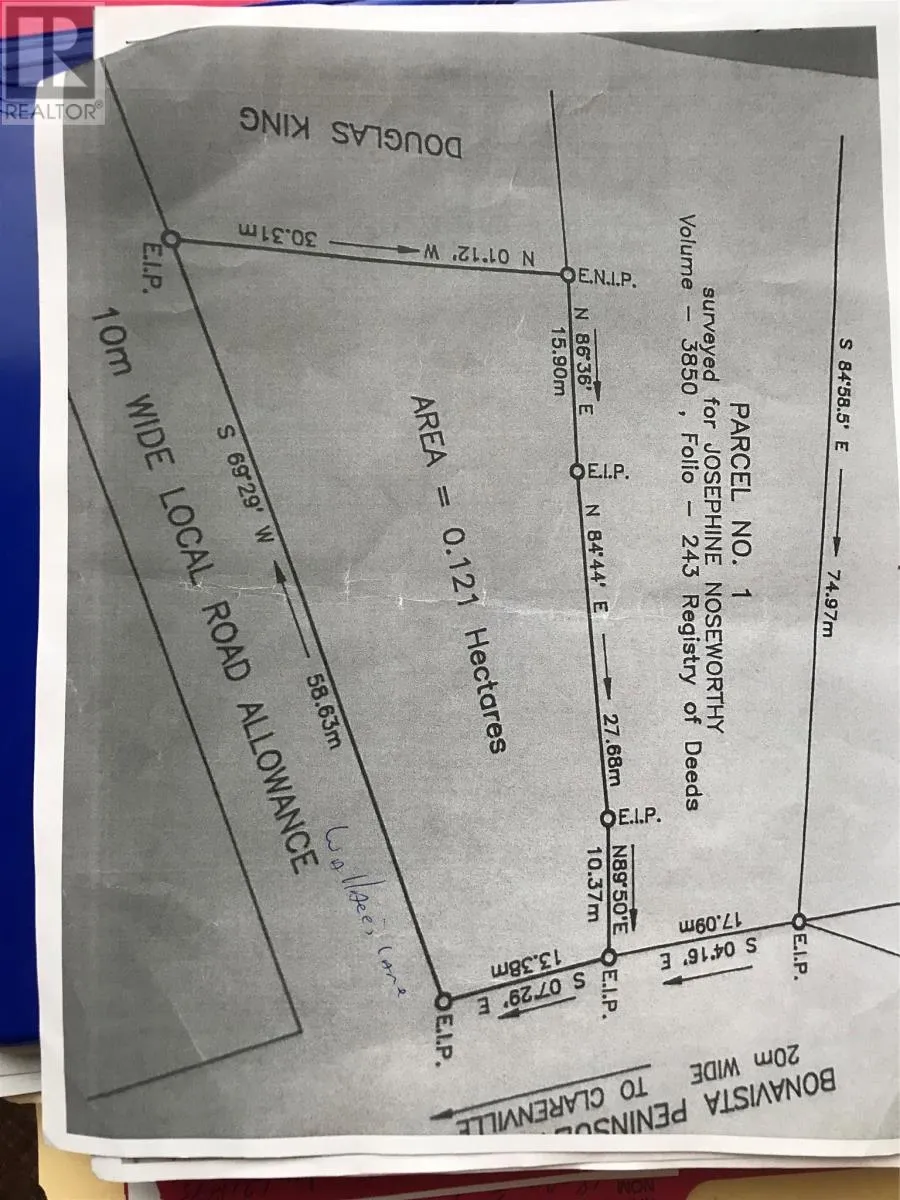 REALTOR®
DOUGLAS KING
S 84°58.5' E
74.97m
PARCEL NO. 1
surveyed for JOSEPHINE NOSEWORTHY
Volume - 3850 , Folio - 243 Registry of Deeds
N 01°12' W
30.31m
E.I.P.
E.N.I.P.
N 86°36' E
15.90m
E.I.P.
N 84°44' E
27.68m
E.I.P.
N89°50'E
10.37m
AREA = 0.121 Hectares
S 69°29' W
58.63m
10m WIDE LOCAL ROAD ALLOWANCE
Lane
17.09m
S 04°16' E
E.I.P.
13.38m
S 07°29' E
E.I.P.
E.I.P.
BONAVISTA PENINSU
20m WIDE
TO CLARENVILLE
NOM